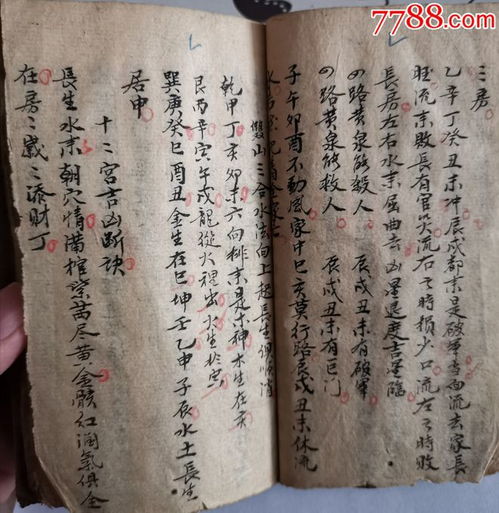 7788.com
三房
乙辛丁癸丑未冲辰戌都来是破军当面流去家長
敗流来敗長有官災流右々時損少口流左々時敗
長房左右水来屈曲去凶星退度吉星臨
四路黄泉能殺人 辰戌丑未有破軍
四路黄泉能救人 辰戌丑未有巨门
子午卯酉不動風家中巳亥莫行路辰戌丑未休流
雙山三合水法向上起長生順消
乾甲丁亥卯未六向排来是木神木生在亥
艮丙辛寅午戌龍從火裡出火生於寅
巽庚癸巳酉丑金生在巳坤壬乙申子辰水土長生
居申
十二宫吉凶断诀
長生水来朝穴情満棺紫茜尽黄金骸紅润氣俱全
在房々歳々添財丁